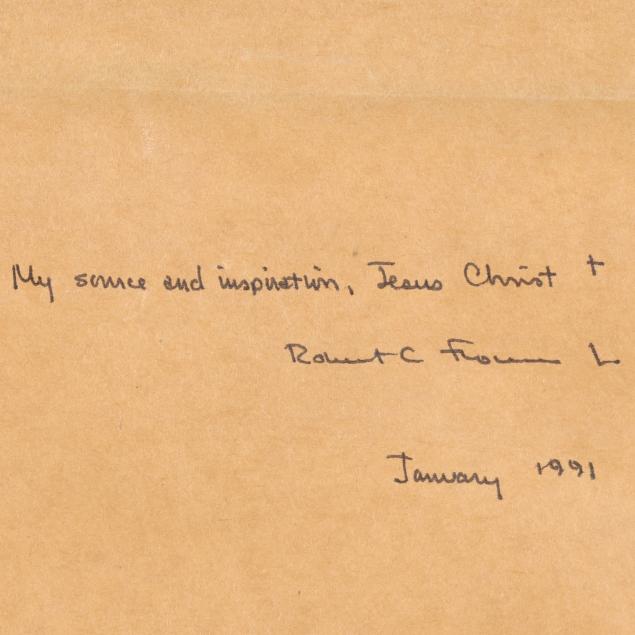 My source and inspiration, Jesus Christ †
Robert C
January 1991